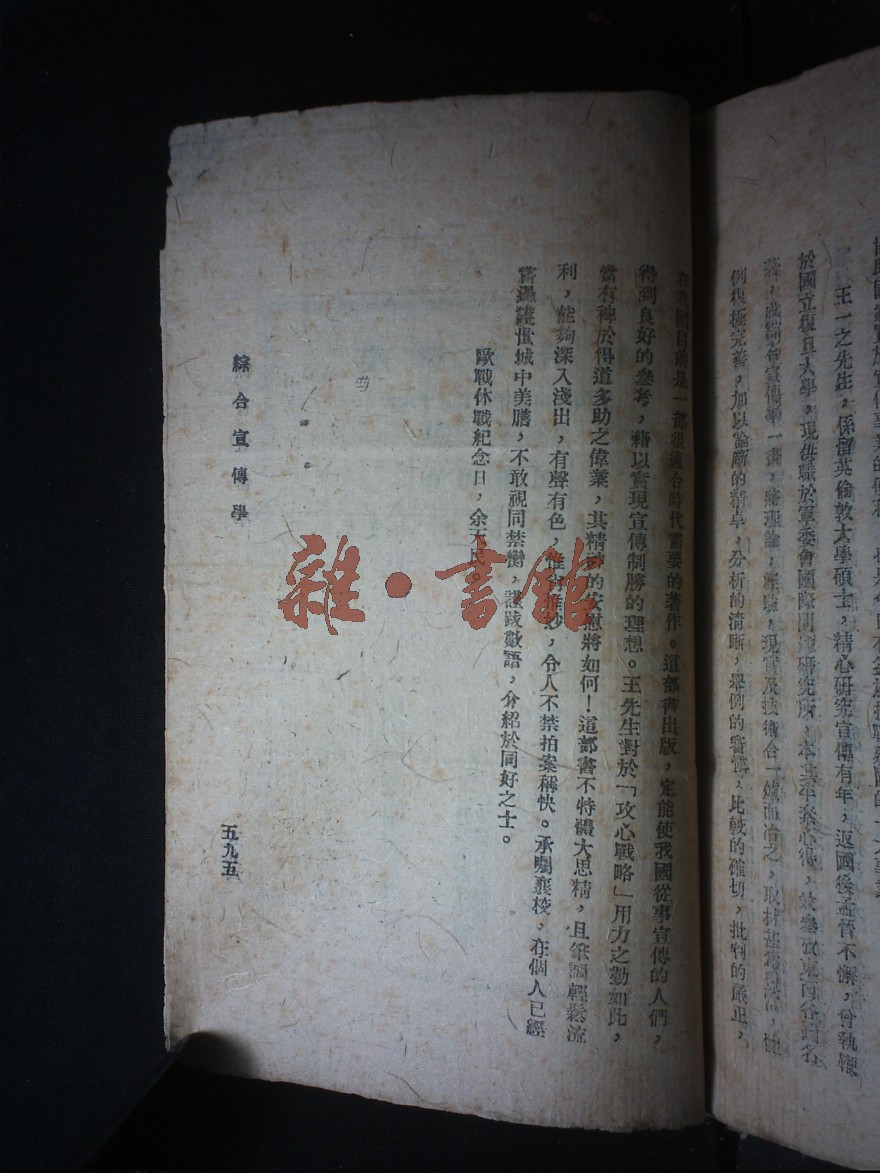 王一之先生，係留英倫敦大學碩士，精心研究宣傳有年，返國後孟晉不懈，曾執鞭
於國立復旦大學，現供職於軍委會國際問題研究所，本其年來心得，並參攷東西各國名
著，成綜合宣傳學一書，將理論，經驗，現實及技術合一爐而冶之，取材
例復極完善，加以論斷的精卓，分析的清晰，舉例的審慎，比較的確切，批判的嚴正，
在我國目前是一部很適合時代需要的著作。這部書出版，定能使我國從事宣傳的人們，
得到良好的參考，藉以實現宣傳制勝的理想。王先生對於「攻心戰略」用力之勤如此，
當有裨於得道多助之偉業，其精神的安慰將如何！這部書不特體大思精，且筆調輕鬆流
利，能夠深入淺出，有聲有色，惟妙惟妙，令人不禁拍案稱快。承囑襄校，在個人已經
嘗遍
城中美膳，不敢視同禁臠，謹跋數語，介紹於同好之士。
歐戰休戰紀念日，余天民
綜合宣傳學
五九五
雜·書館